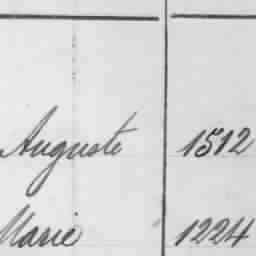 Auguste 1512
Marie 1224